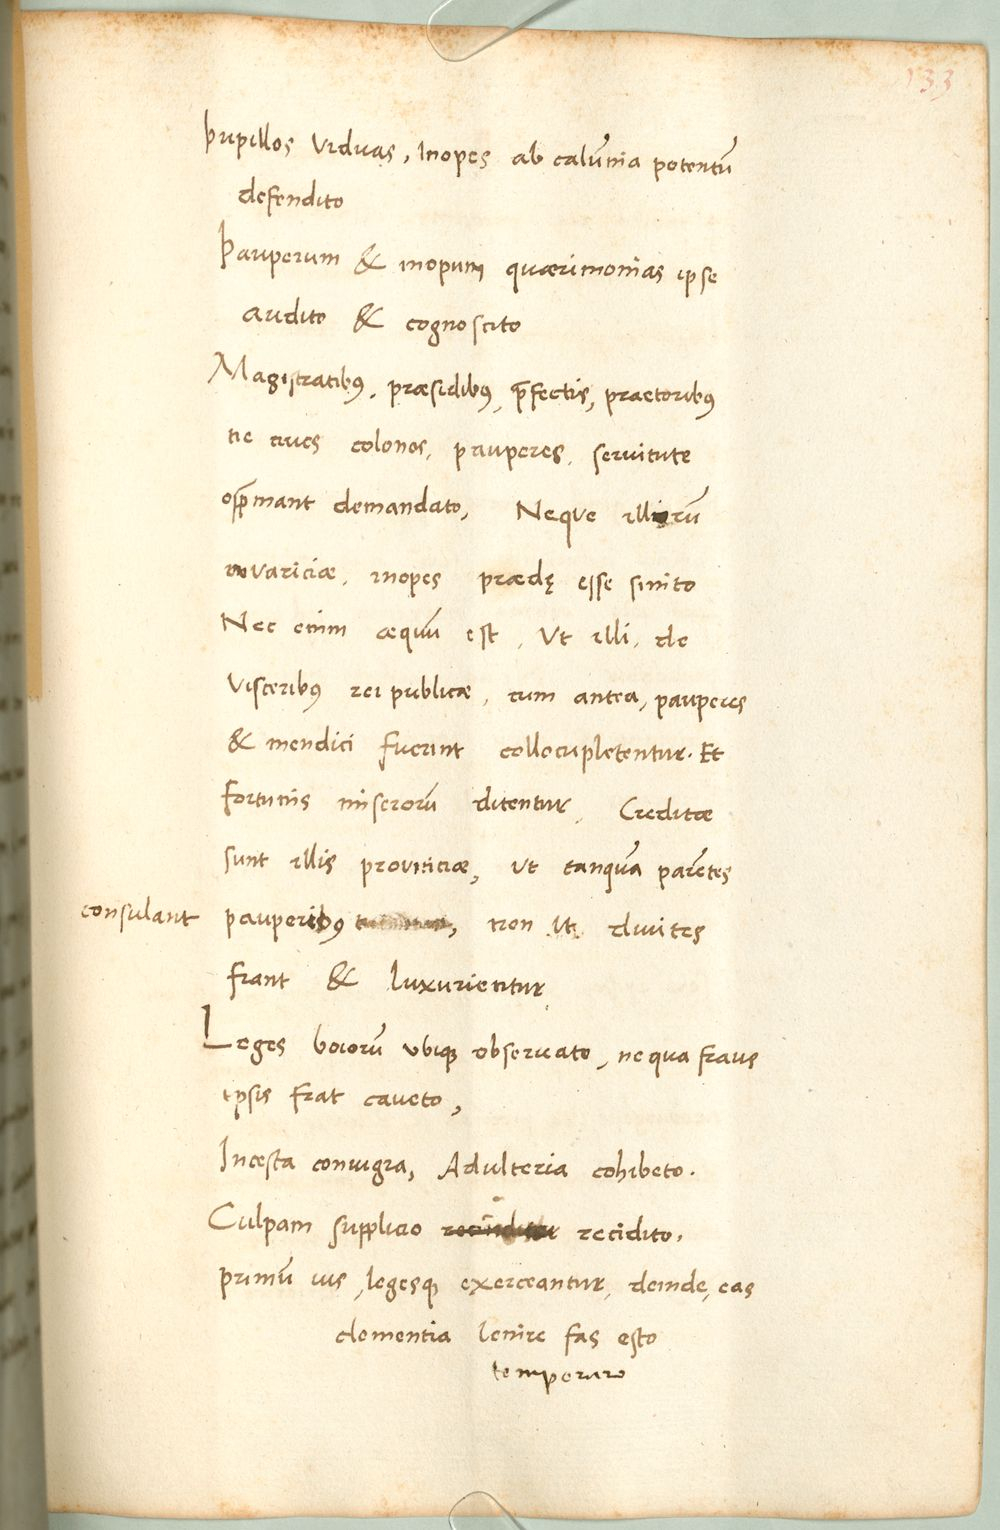 133
pupillos viduas, Inopes ab calūnia potentū
defendito
Pauperum & inopum quærimonias ipse
audito & cognoscito
Magistratibꝰ, præsidibꝰ, p̄fectis, praetoribꝰ
ne ciues colonos, pauperes, seruitute
opp̄mant demandato, Neque illorū
avariciæ, inopes prædę esse sinito
Nec enim æquū est, Ut illi, de
visceribꝰ rei publicæ, cum antea, pauperes
& mendici fuerint collocupletentur. Et
fortunis miserorū ditentur Creditæ
sunt illis prouinciæ, ut tanquā parētes
consulant pauperibꝰ, non ut diuites
fiant & luxurientur
Leges boiorū ubiqꝫ obseruato, ne qua fraus
ipsis fiat caveto,
Incesta coniugia, Adulteria cohibeto.
Culpam supplicio recidito.
primū ius, legesqꝫ exerceantur, deinde, eas
clementia lenire fas esto
temperare